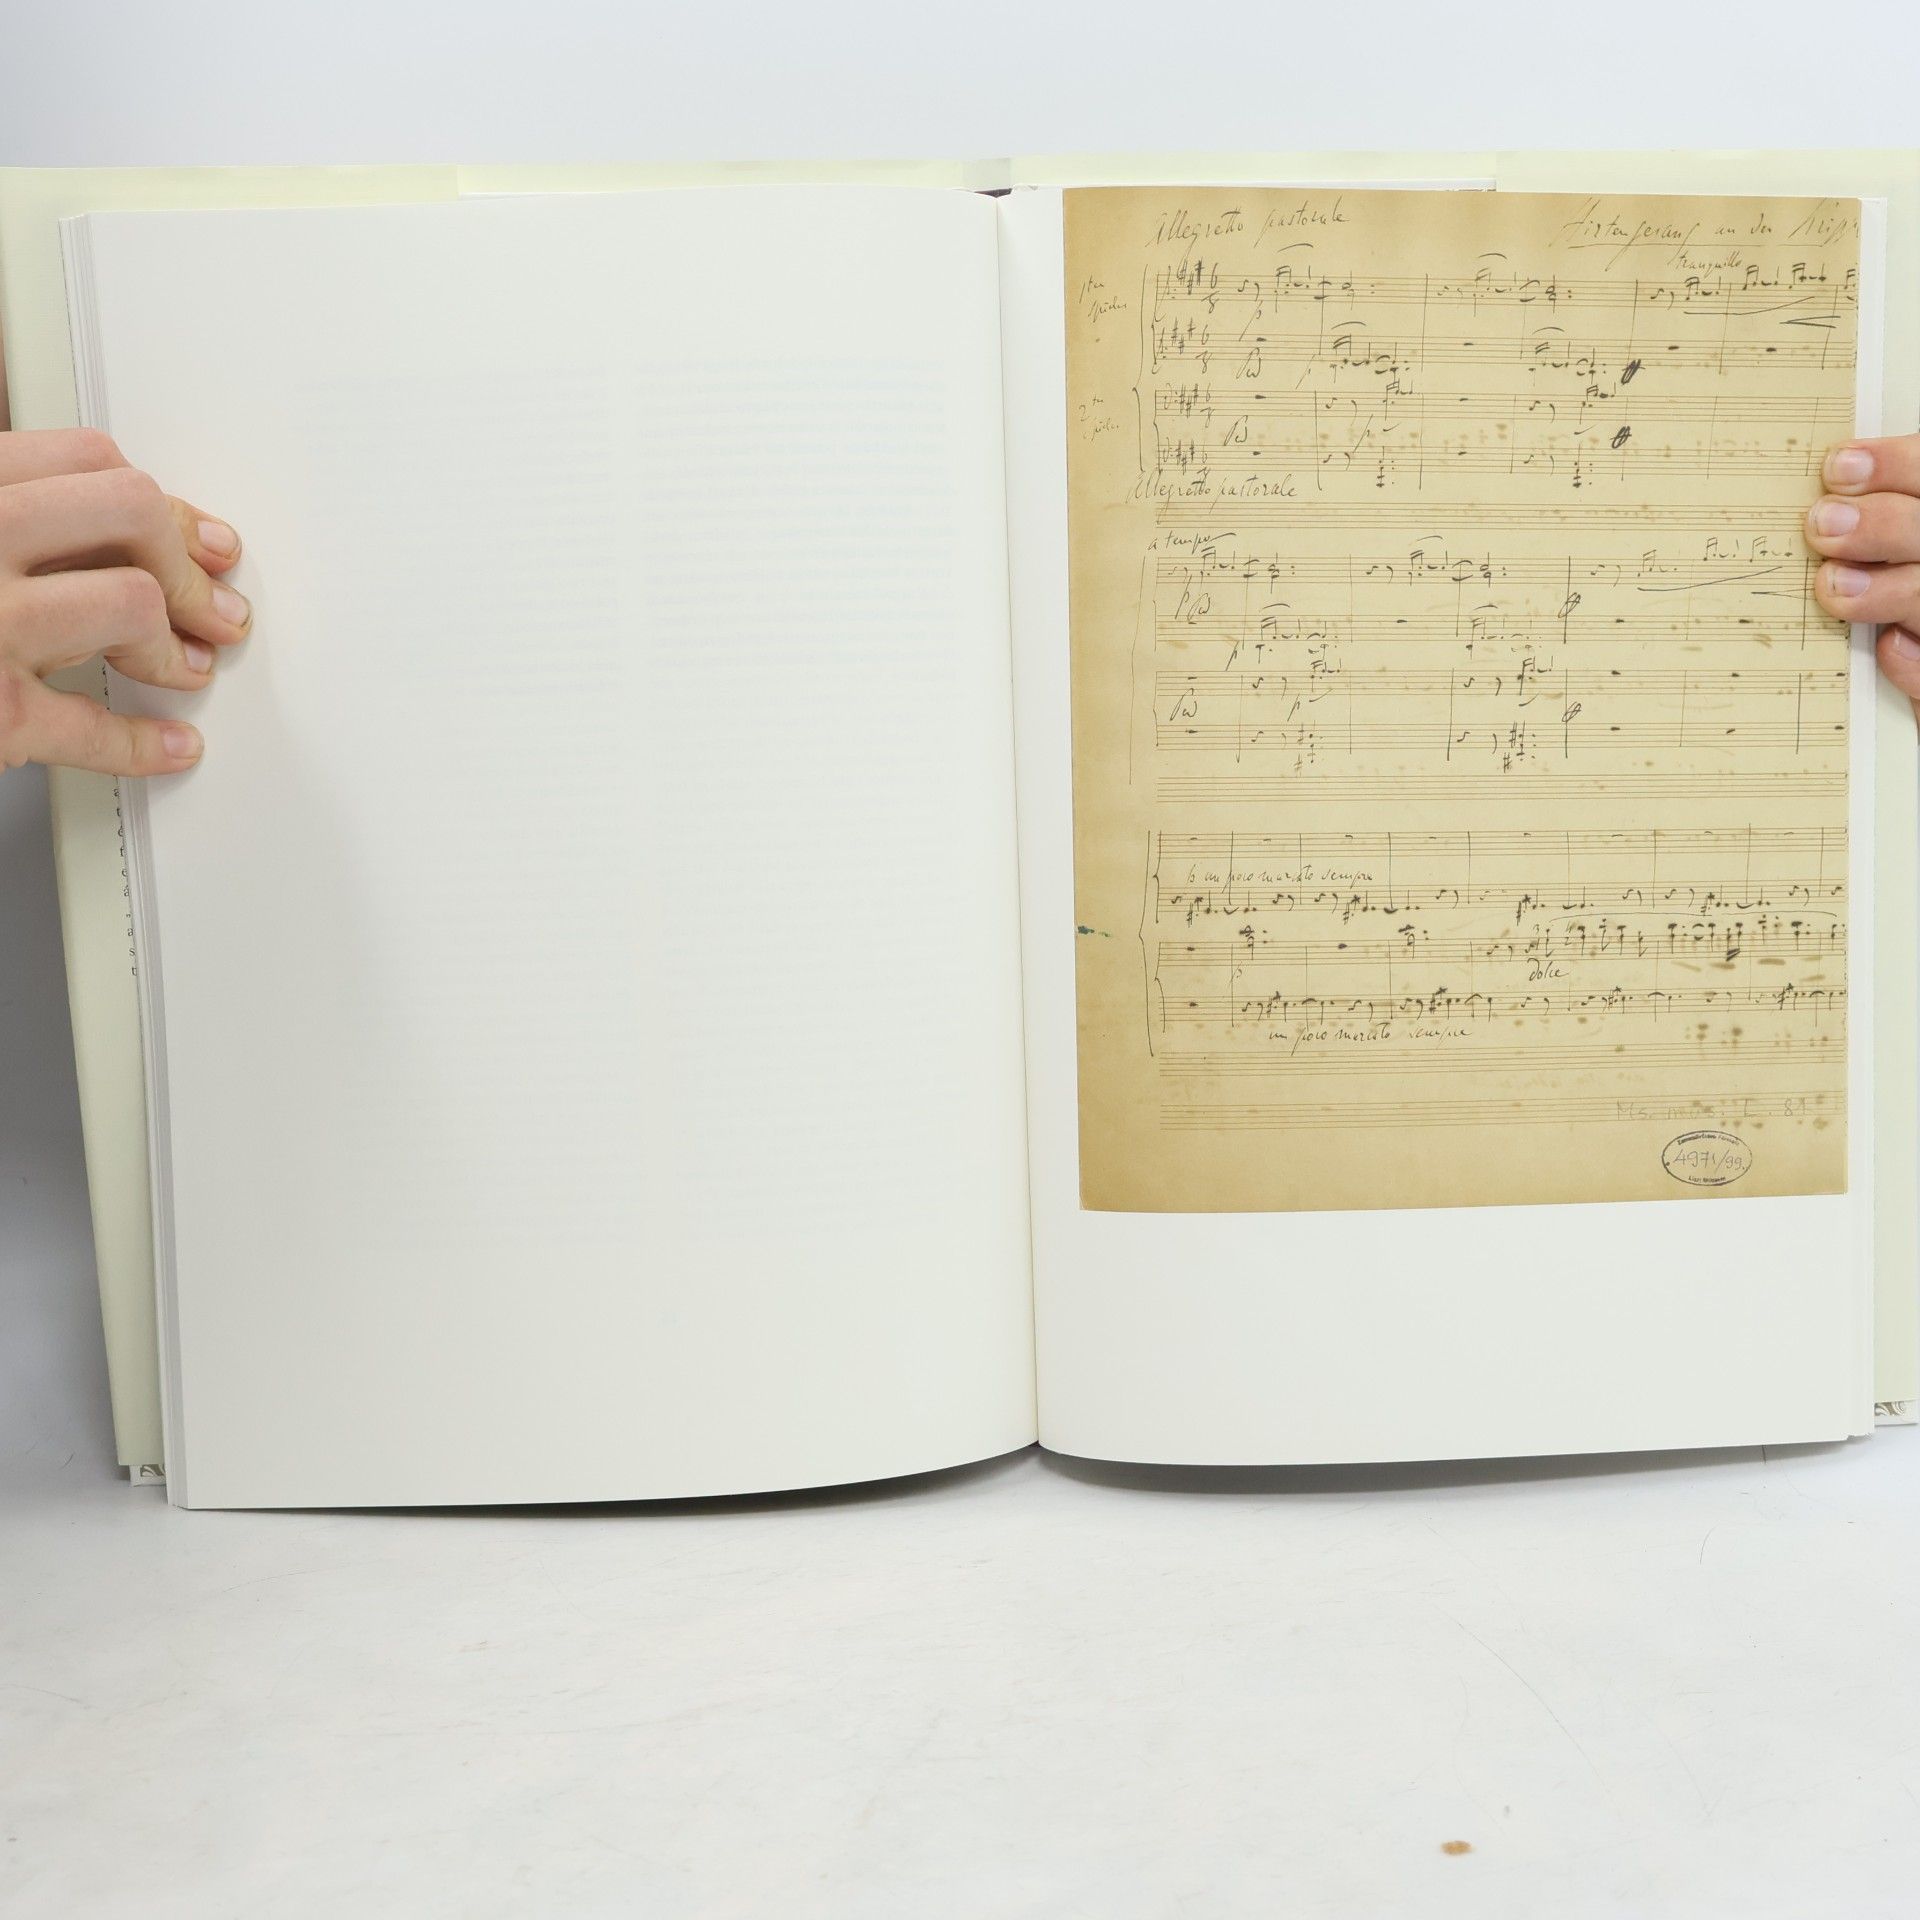 Allegretto pastorale
Hirtengesang an der Kripp
tranquillo
1ten
Spieler
p
Ped
p
2ten
Spieler
Ped
p
Allegretto pastorale
a tempo
p
Ped
p
Ped
p
un poco marcato sempre
p
dolce
un poco marcato sempre
Ms. mus. L. 81
4971/99.